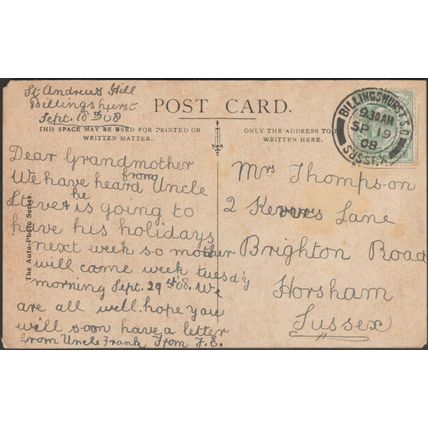 St Andrews Hill
Billingshurst
Sept. 18th 08
POST CARD.
THIS SPACE MAY BE USED FOR PRINTED OR
WRITTEN MATTER.
ONLY THE ADDRESS TO
WRITTEN HERE.
BILLINGSHURST S.O
9.30AM
SP 19
08
SUSSEX
Dear Grandmother
We have heard from Uncle
he is going to
have his holidays
next week so mother
will come week tuesday
morning Sept. 29th 08. We
are all well. hope you
will soon have a letter
from Uncle Frank From F.E.
The Auto-Photo Series
Mrs Thompson
2 Lane
Brighton Road
Horsham
Sussex